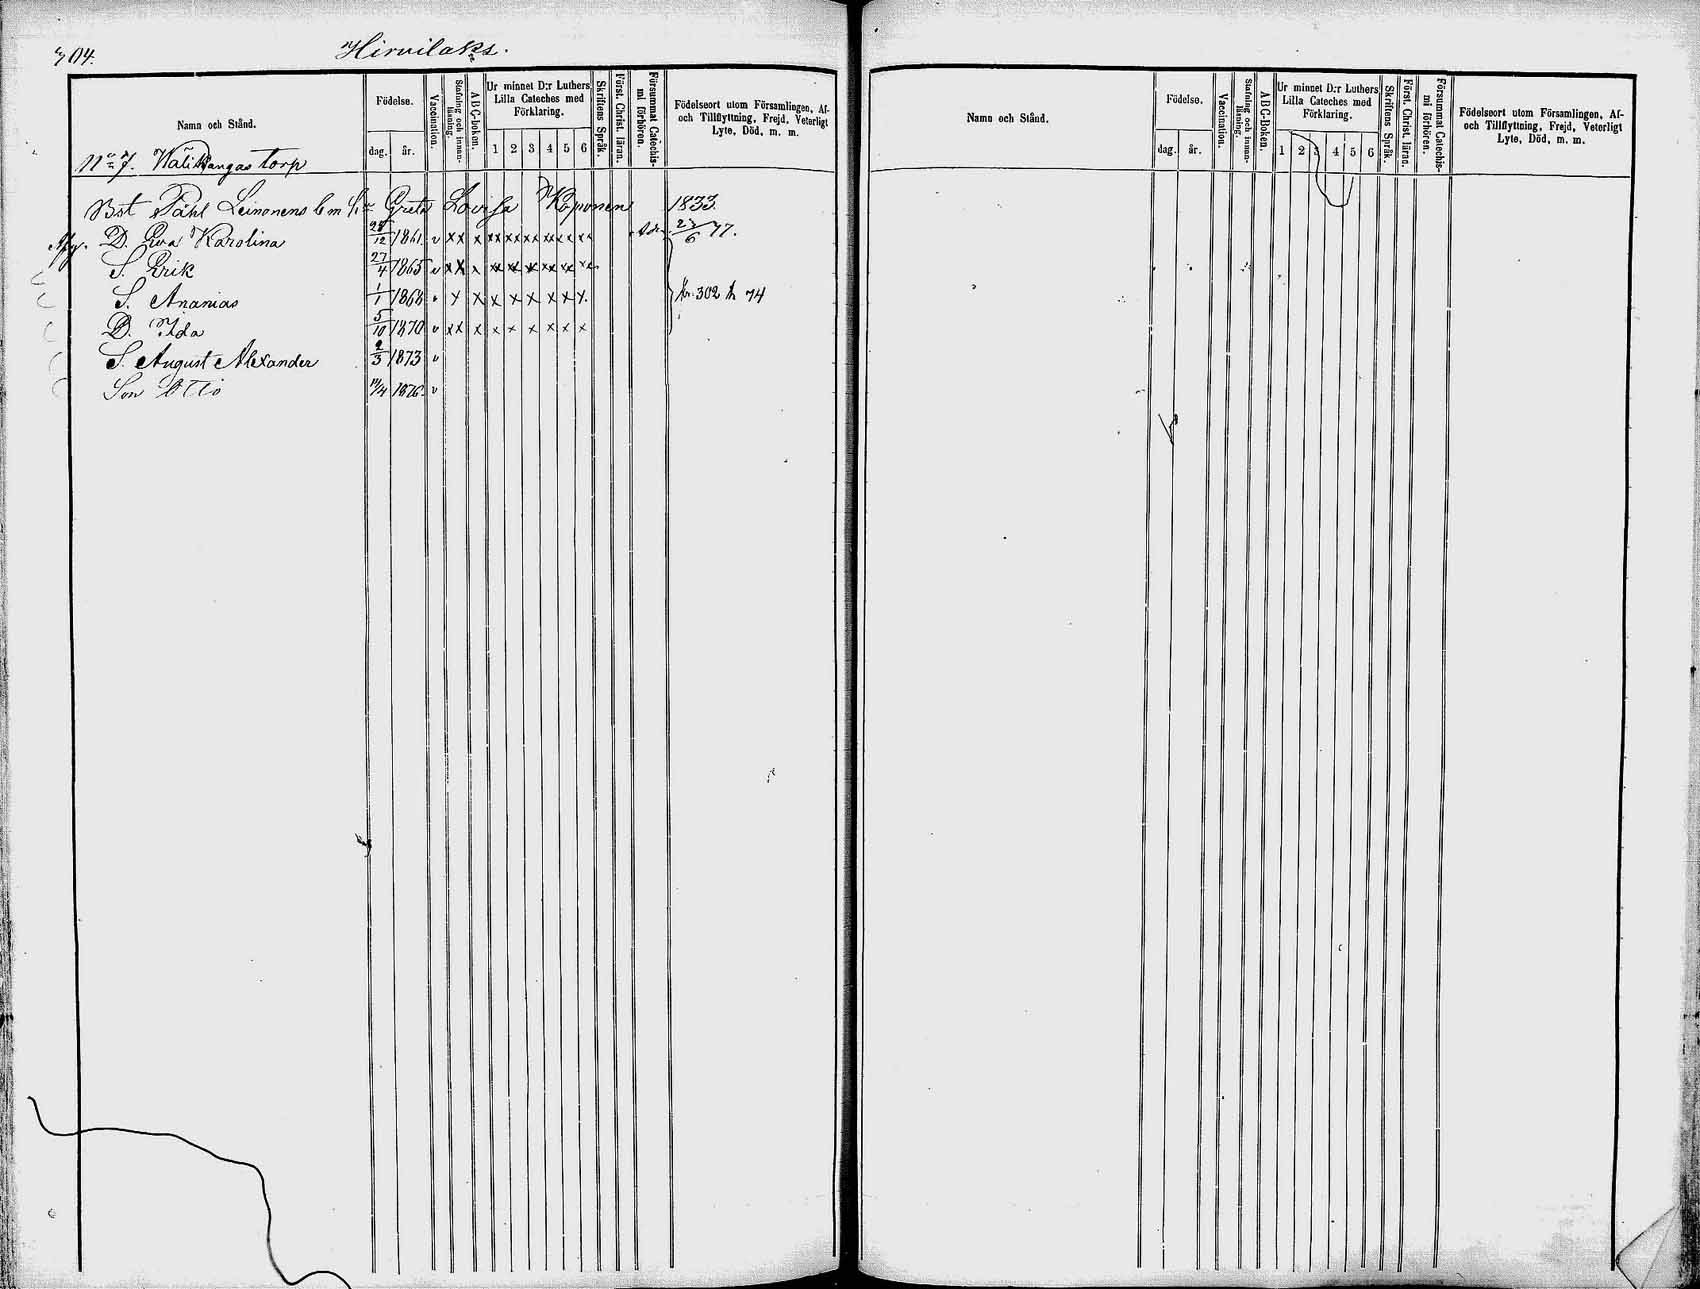 304.
Hirvilaks.
Namn och Stånd.
Födelse.
dag.
år.
Vaccination.
Stafning och innan-
läsning.
ABC-boken.
Ur minnet D:r Luthers
Lilla Cateches med
Förklaring.
1 2 3 4 5 6
Skriftens Språk.
Först. Christ. läran.
Försummat Catechis-
mi förhören.
Födelseort utom Församlingen, Af-
och Tillflyttning, Frejd, Veterligt
Lyte, Död, m. m.
No 7. Välikangas torp
Bst Påhl Leinonens b m h. Greta Lovisa Koponen 1833
D. Eva Karolina 28/12 1861. v xx x xx xx xx xx x x xx 23/6 77.
S. Erik 27/4 1865 v xx x xx xx xx xx xx xx
S. Ananias 1/1 1868 v x x x x x x x x. 302 74
D. Ida 5/10 1870 v xx x x x x x x x
S. August Alexander 2/3 1873 v
Son Otto 1876. v
Namn och Stånd.
Födelse.
dag.
år.
Vaccination.
Stafning och innan-
läsning.
ABC-boken.
Ur minnet D:r Luthers
Lilla Cateches med
Förklaring.
1 2 3 4 5 6
Skriftens Språk.
Först. Christ. läran.
Försummat Catechis-
mi förhören.
Födelseort utom Församlingen, Af-
och Tillflyttning, Frejd, Veterligt
Lyte, Död, m. m.